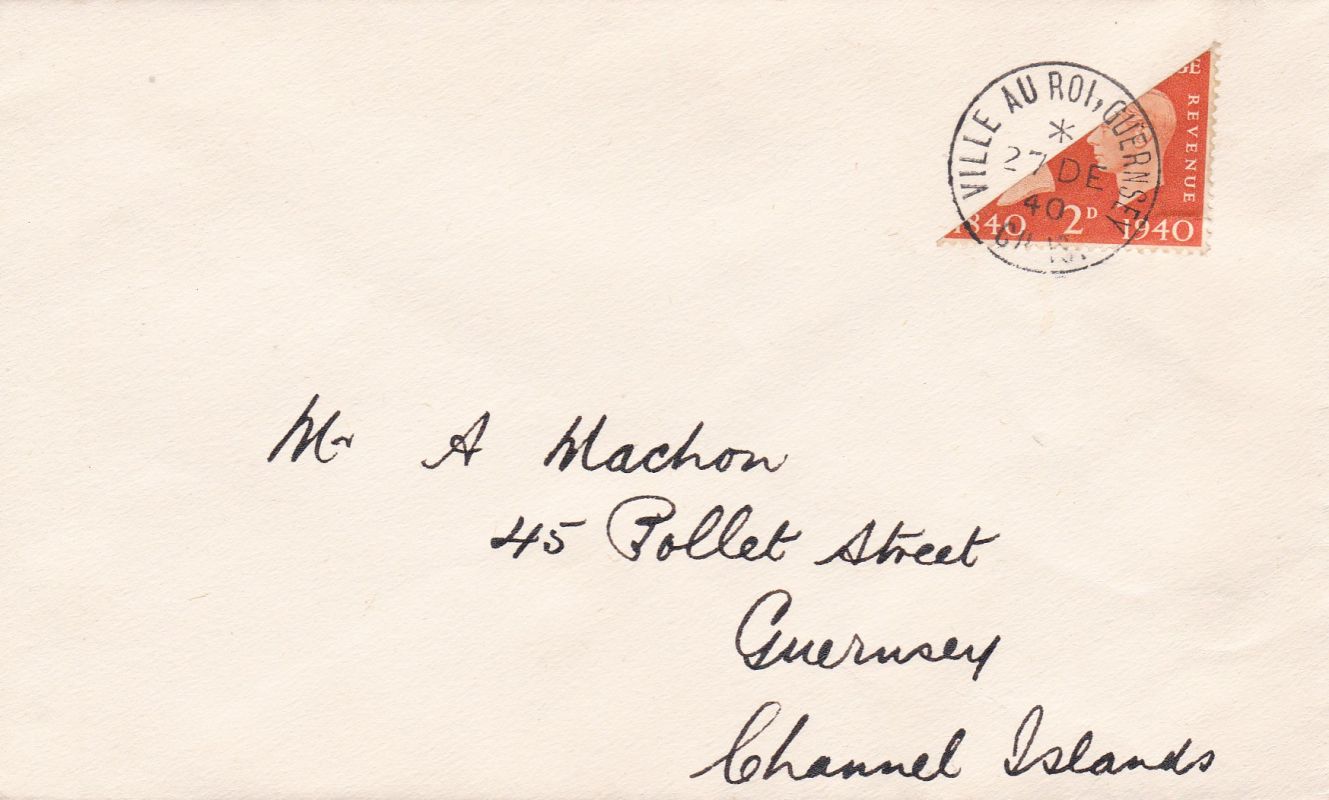 VILLE AU ROI, GUERNSEY
27 DE
40
CH. IS.
GE
REVENUE
1840 2D 1940
Mr A Machon
45 Pollet Street
Guernsey
Channel Islands